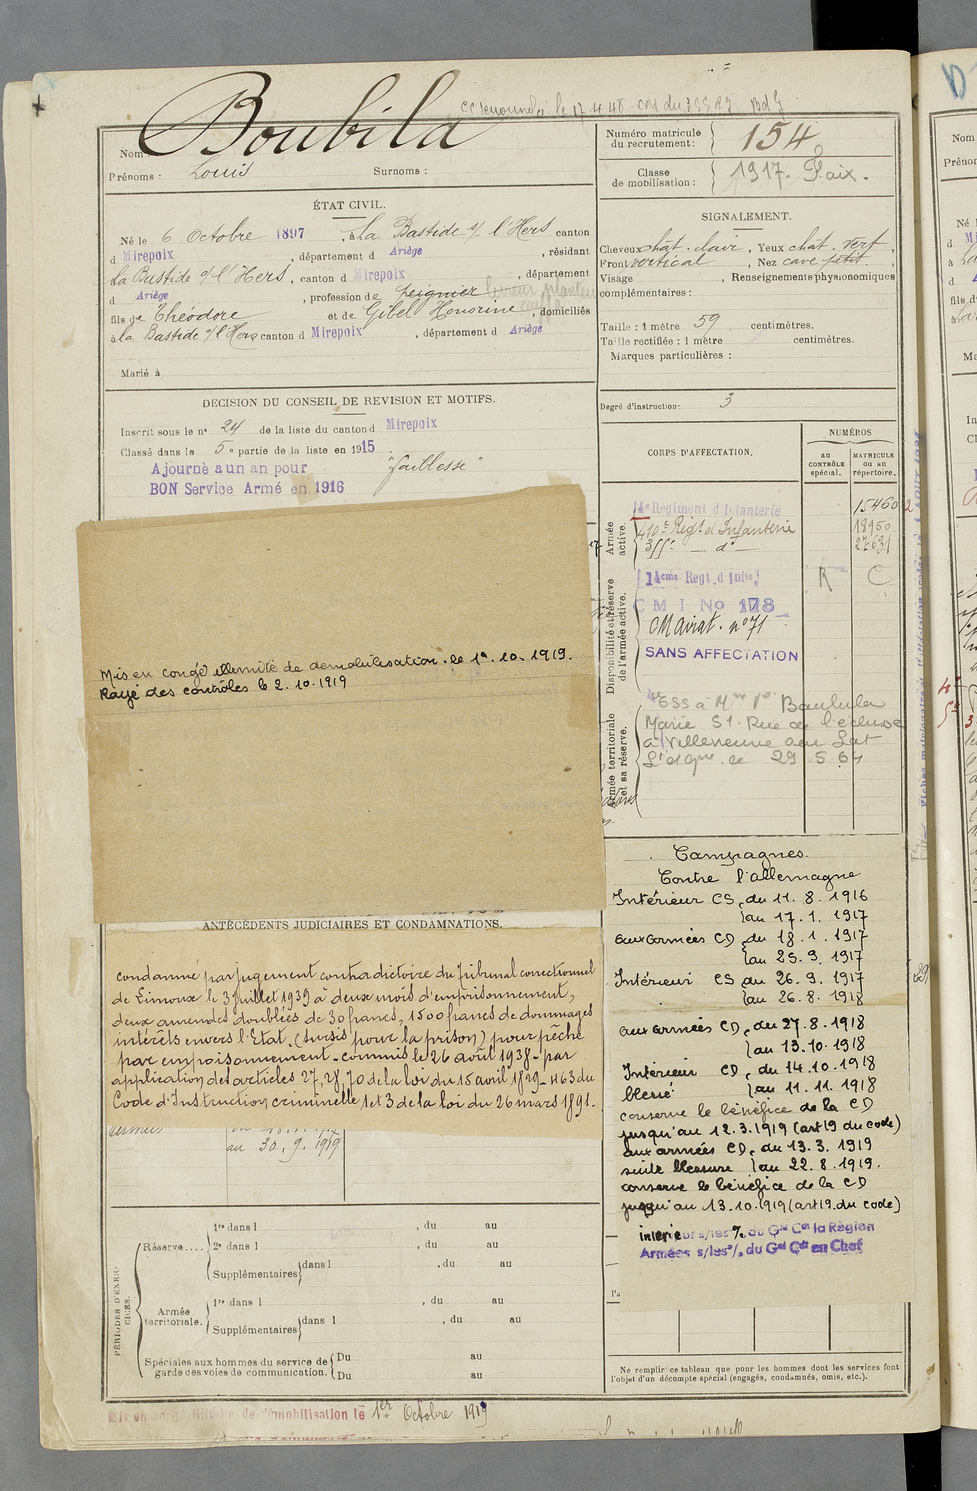 Boubila
Nom :
Prénoms : Louis Surnoms :
ÉTAT CIVIL.
Né le 6 Octobre 1897, à La Bastide s/ l'Hers canton
d Mirepoix, département d Ariège, résidant
La Bastide s/ l'Hers, canton d Mirepoix, département
d Ariège, profession de peignier
fils de Théodore et de Gibel Honorine, domiciliés
à la Bastide s/ l'Hers canton d Mirepoix, département d Ariège
Marié à
DECISION DU CONSEIL DE REVISION ET MOTIFS.
Inscrit sous le n° 24 de la liste du canton d Mirepoix
Classé dans la 5e partie de la liste en 1915.
Ajourné a un an pour "faiblesse"
BON Service Armé en 1916
Mis en congé illimité de démobilisation. le 1er. 10. 1919.
Rayé des contrôles le 2. 10. 1919
ANTÉCÉDENTS JUDICIAIRES ET CONDAMNATIONS.
condamné par jugement contradictoire du Tribunal correctionnel
de Limoux le 3 juillet 1939 à deux mois d'emprisonnement,
deux amendes doublées de 30 francs, 1500 francs de dommages
intérêts envers l'Etat. (sursis pour la prison) pour pêche
par empoisonnement - commis le 26 août 1938 - par
application des articles 27, 28, 70 de la loi du 15 avril 1829 - 463 du
Code d'Instruction criminelle 1 et 3 de la loi du 26 mars 1891.
au 30. 9. 1919
PÉRIODES D'EXERCICES.
Réserve....
1re dans l , du au
2e dans l , du au
Supplémentaires dans l , du au
Armée territoriale.
1re dans l , du au
Supplémentaires dans l , du au
Spéciales aux hommes du service de garde des voies de communication.
Du au
Du au
Mis en congé illimité de démobilisation le 1er Octobre 1919
Numéro matricule du recrutement : 154
Classe de mobilisation : 1917. Paix.
SIGNALEMENT.
Cheveux chât. clair, Yeux chat. vert,
Front vertical, Nez cave petit,
Visage , Renseignements physionomiques
complémentaires :
Taille : 1 mètre 59 centimètres.
Taille rectifiée : 1 mètre centimètres.
Marques particulières :
Degré d'instruction : 3
CORPS D'AFFECTATION.
NUMÉROS
au CONTRÔLE spécial.
MATRICULE ou au répertoire.
Armée active.
14e Régiment d'Infanterie 15460
410e Regt d'Infanterie 18950
355e — d° — 27631
Disponibilité et réserve de l'armée active.
14eme Regt. d'Infie
C M I No 178
CMairat. n° 71
SANS AFFECTATION
Armée territoriale et sa réserve.
Marie 51. Rue de l'écluse
à Villeneuve sur Lot
29 5 64
Campagnes.
Contre l'allemagne
Intérieur CS, du 11. 8. 1916
au 17. 1. 1917
aux armées CD du 18. 1. 1917
au 25. 9. 1917
Intérieur CS du 26. 9. 1917
au 26. 8. 1918
aux armées CD, du 27. 8. 1918
au 13. 10. 1918
Intérieur CD, du 14. 10. 1918
blessé au 11. 11. 1918
conserve le bénéfice de la CD
jusqu'au 12. 3. 1919 (art 19 du code)
aux armées CD, du 13. 3. 1919
suite blessure au 22. 8. 1919.
conserve le bénéfice de la CD
jusqu'au 13. 10. 1919 (art 19. du code)
interieur s/les °/. du Gal Ct la Région
Armées s/les °/. du Gal Cdt en Chef
Ne remplir ce tableau que pour les hommes dont les services font
l'objet d'un décompte spécial (engagés, condamnés, omis, etc.).